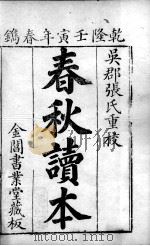 乾隆壬寅年春鐫
吳郡張氏重䊸
春秋讀本
金閶書業堂藏板
www.ertongbook.com